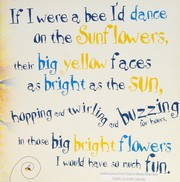 If I were a bee I'd dance
on the Sunflowers,
their big yellow faces
as bright as the sun,
hopping and twirling and buzzing
for hours,
in those big bright flowers
I would have so much fun.